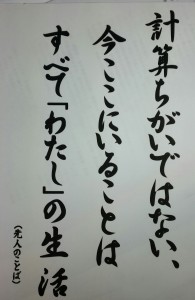 計算ちがいではない、
今ここにいることは
すべて「わたし」の生活
(先人のことば)